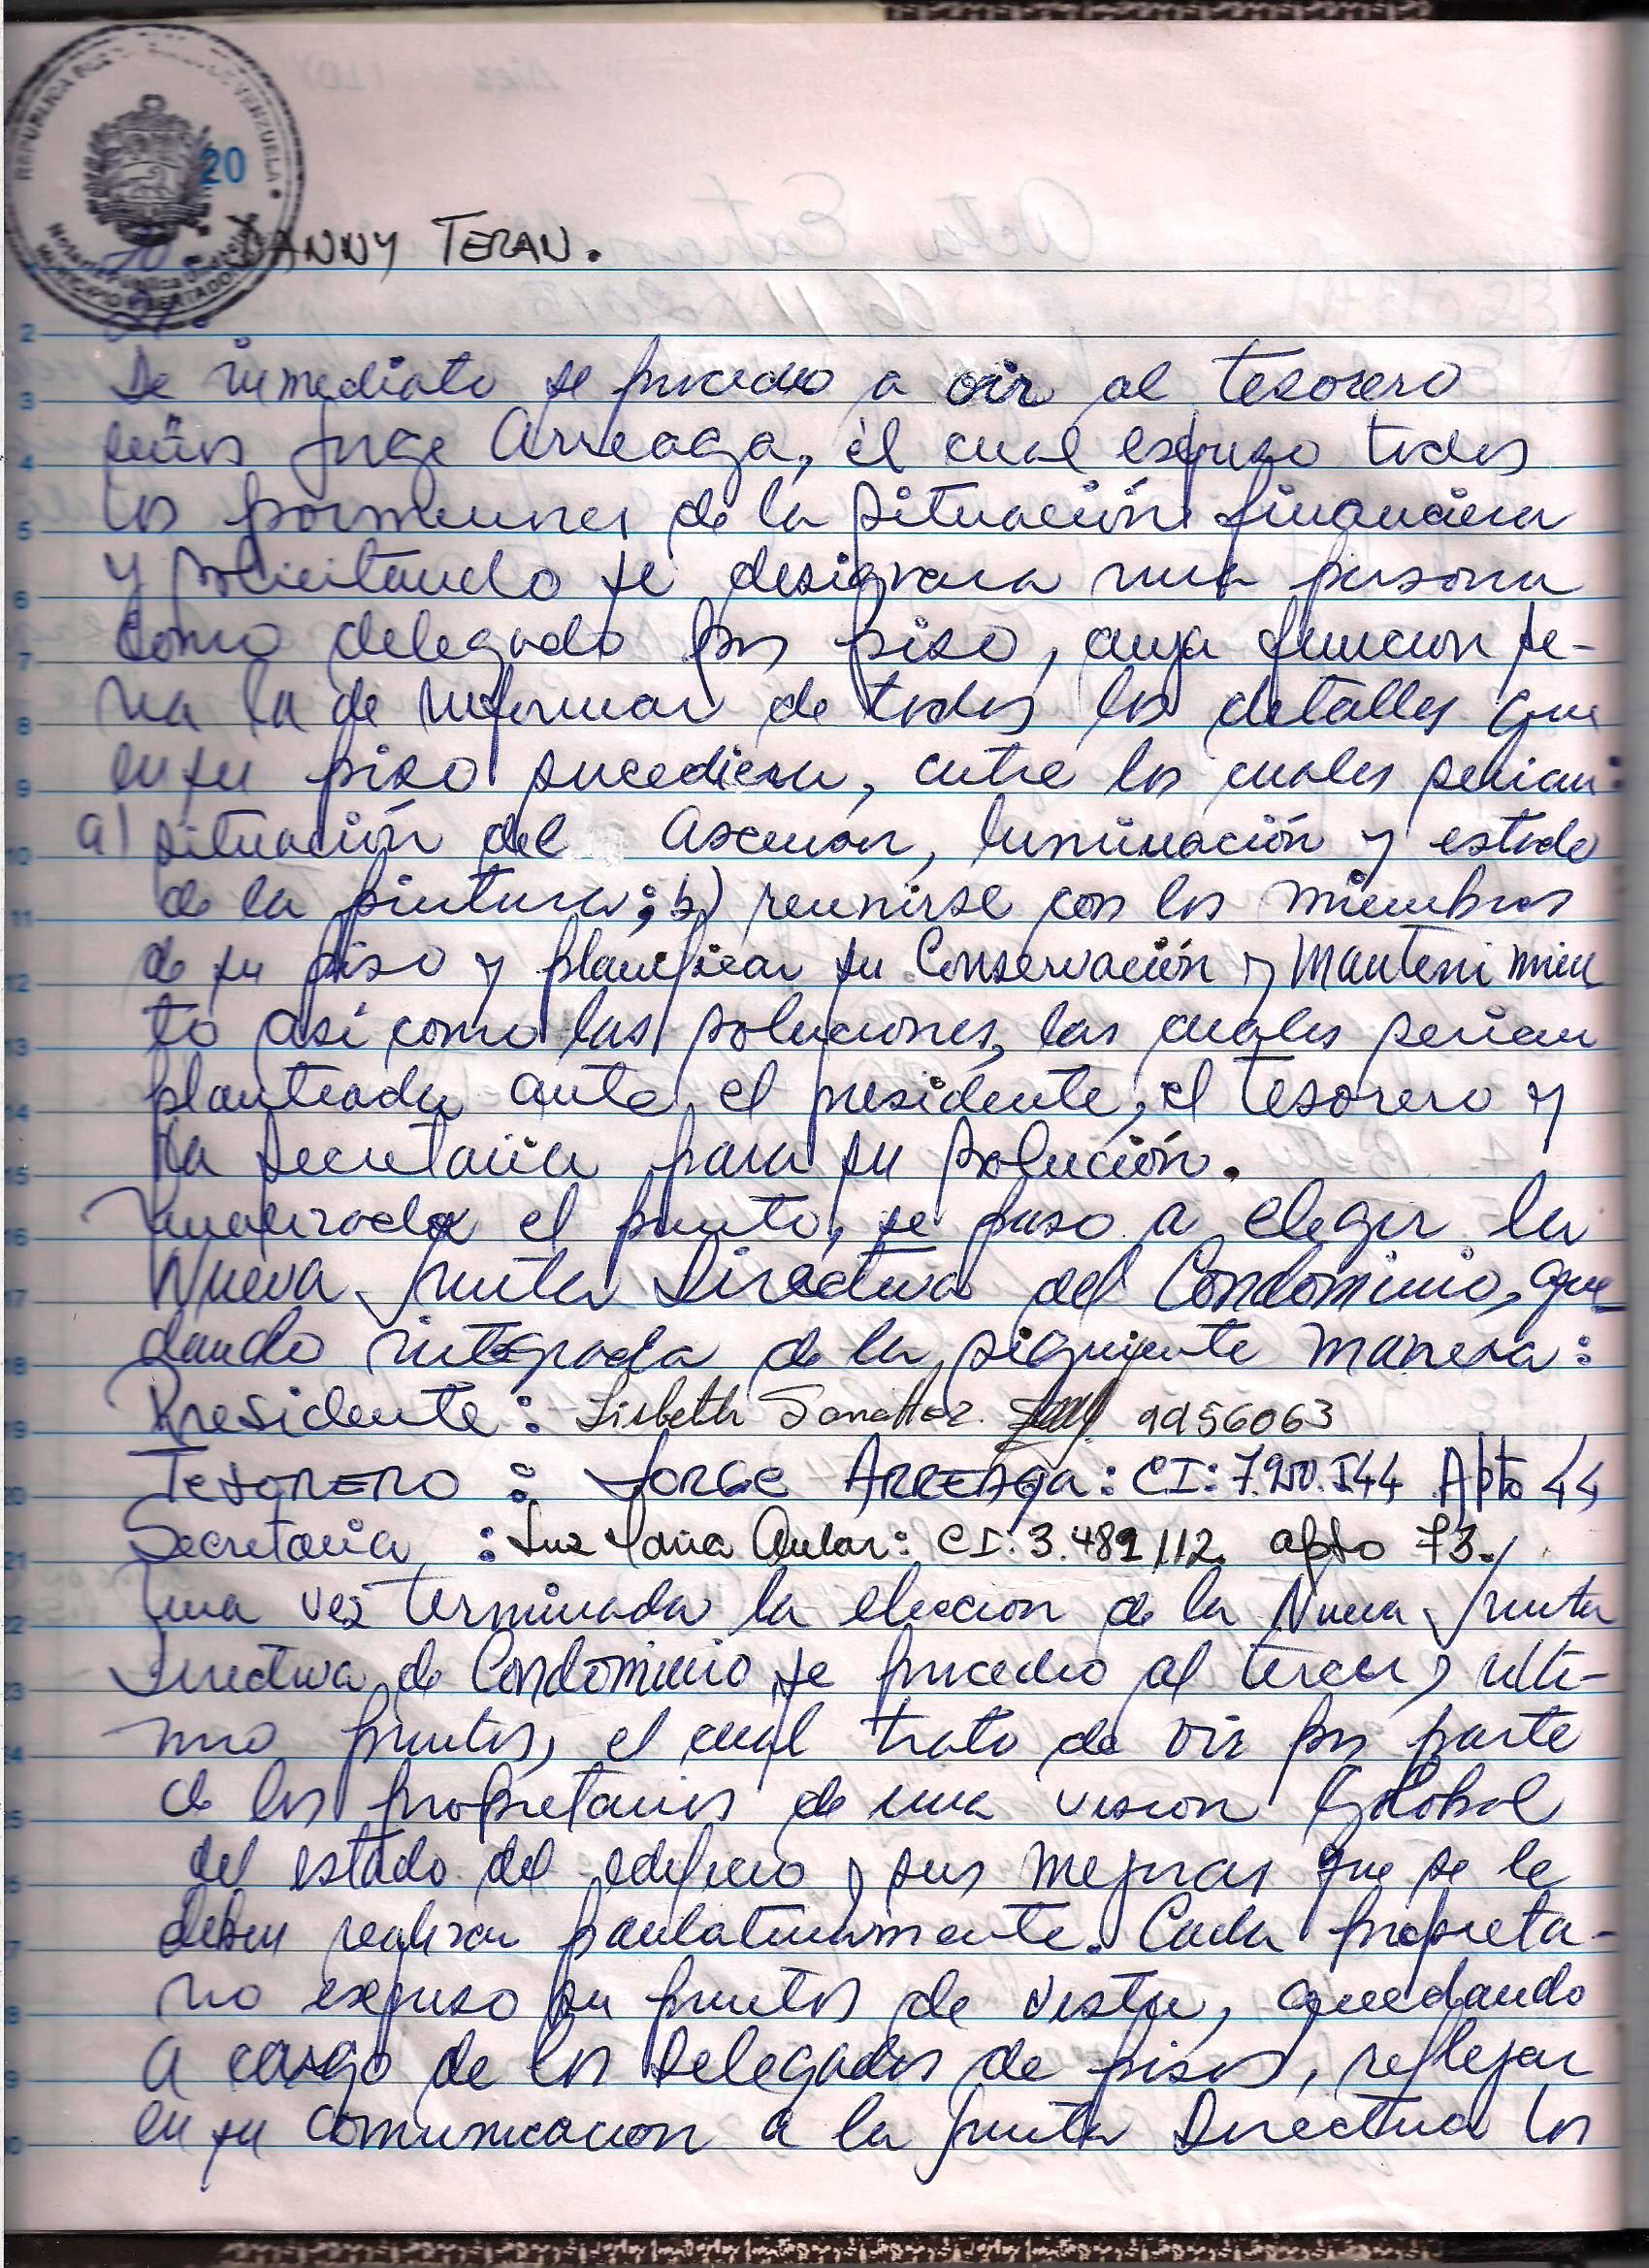 REPUBLICA BOLIVARIANA DE VENEZUELA
20
DANNY TERAN.
2
3 De inmediato se procedio a oir al tesorero
4 señor Jorge Arreaga, el cual expuso todos
5 los pormenores de la situación financiera
6 y solicitando se designara una persona
7 como delegado por piso, cuya funcion se-
8 ria la de informar de todos los detalles que
9 en su piso sucediera, entre los cuales serian:
10 a) situación del Ascensor, iluminación y estado
11 de la pintura; b) reunirse con los miembros
12 de su piso y planificar su Conservación y Mantenimien
13 to así como las soluciones, las cuales serian
14 planteada ante el presidente, el tesorero y
15 la Secretaria para su solución.
16 Finalizado el punto, se paso a elegir la
17 Nueva Junta Directiva del Condominio, que_
18 dando integrada de la siguiente manera:
19 Presidente: Lisbeth Sanchez. 9956063
20 TESORERO: JORGE ARREAGA: CI: 7.250.544 Apto 44
21 Secretaria: Luz Maria Aular: CI: 3.489112. apto 73.
22 Una vez terminada la eleccion de la Nueva Junta
23 Directiva de Condominio, se procedio al tercer y ulti-
24 mo puntos, el cual trato de oir por parte
5 de los propietarios de una vision Global
6 del estado del edificio y sus mejoras que se le
7 deben realizar paulatinamente. Cada propieta-
8 rio expuso su puntos de vista, quedando
9 a cargo de los Delegados de pisos, reflejar
0 en su comunicacion a la junta Directiva los